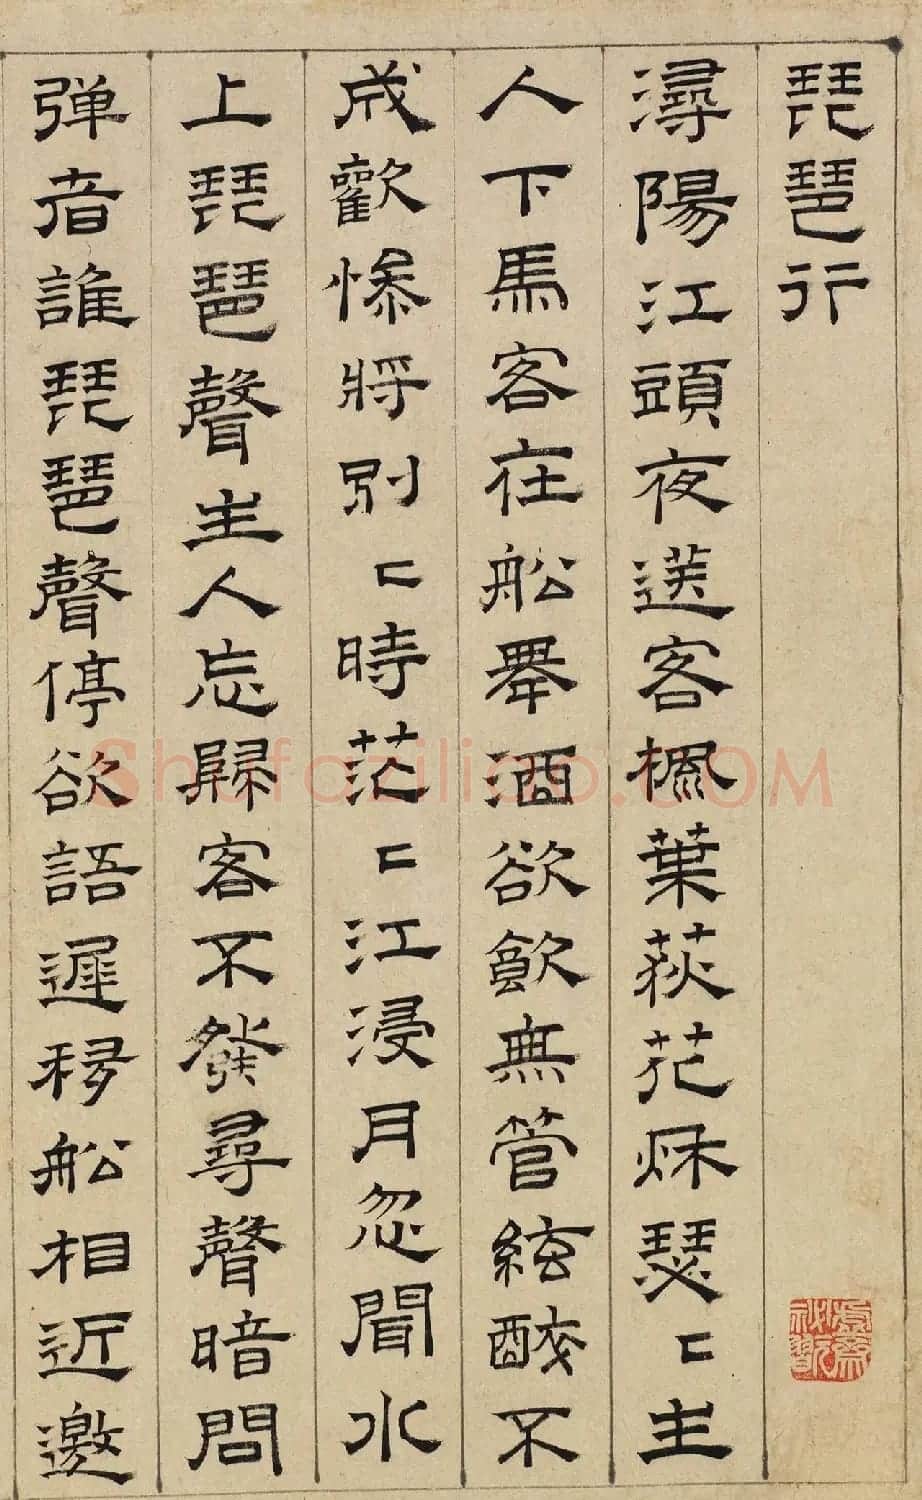 琵琶行
潯陽江頭夜送客楓葉荻花秋瑟〻主
人下馬客在船舉酒欲飲無管絃醉不
成歡慘將別〻時茫〻江浸月忽聞水
上琵琶聲主人忘歸客不發尋聲暗問
弹者誰琵琶聲停欲語遲移船相近邀
虛齋秘翫
Shufaziliao.COM